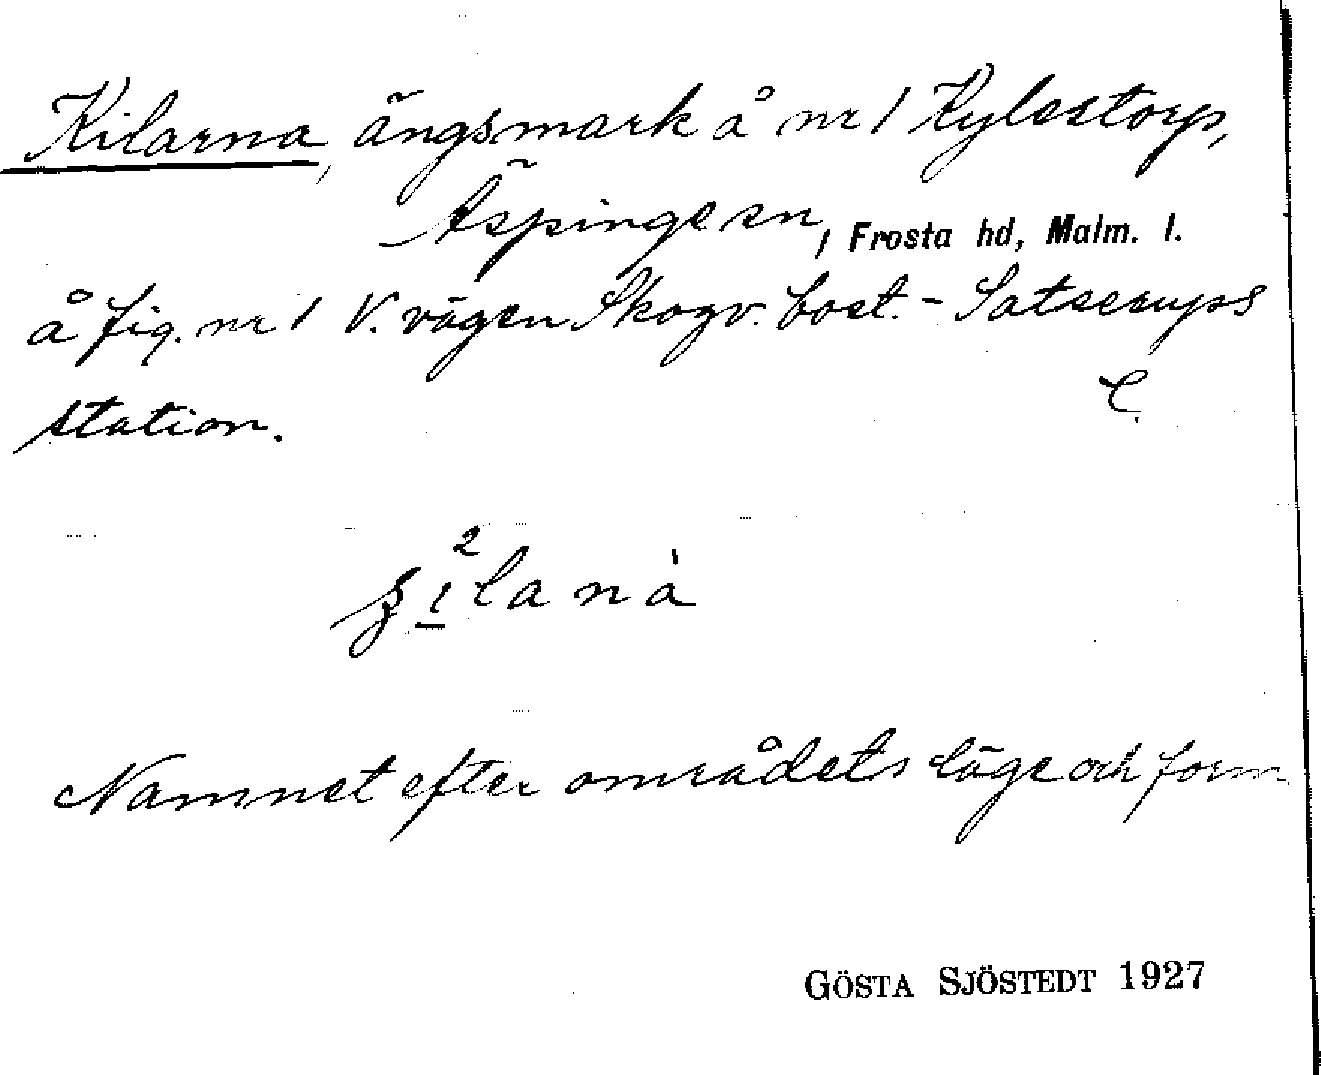 Kilarna, ängsmark å nr 1 Kylestorp,
Äspinge sn, Frosta hd, Malm. l.
å fig. nr 1 V. vägen Skogv. bost. - Satserups
station. C.
Namnet efter områdets läge och form
GÖSTA SJÖSTEDT 1927